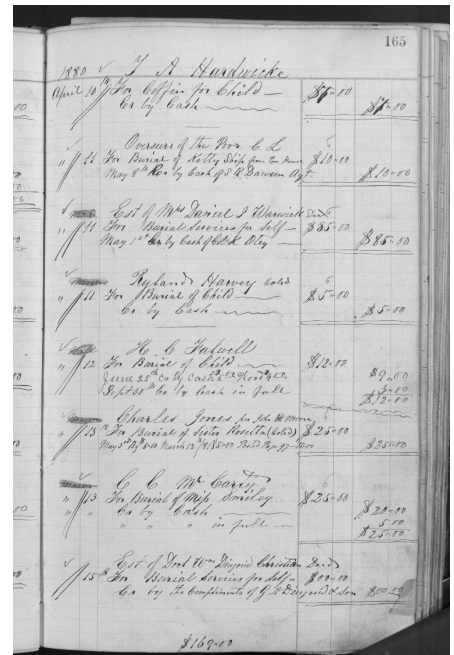 165
1880 T A Hardwicke
April 10th For Coffin for Child
Cr by Cash
Overseers of the Poor C L
" 11 For Burial of Kitty Ship from the House $10.00
May 8th Cr by Cash of S W Dawson Agt. $10.00
Est of Mrs Daniel J Warwick Decd
" 11 For Burial Services for Self $85.00
May 1st Cr by Cash of Otey $85.00
Ryland Harvey Cold
" 11 For Burial of Child $5.00
Cr by Cash $5.00
H. C. Fatwell
" 12 For Burial of Child $12.00
June 25th Cr by Cash $9.00
Sept Cr by Cash in full 3.00
$12.00
Charles Jones for John H
" 13 For Burial of Sister Rosetta (Cold) $25.00
May March $25.00
C C Mc Carty
" 13 For Burial of Miss Smiley $25.00
" " Cr by Cash $20.00
" " " " in full 5.00
$25.00
Est of Doct Wm Diuguid Christian Decd
" 15th For Burial Services for Self $00.00
Cr by the Compliments of G W Diuguid & Son $00.00
$169.00